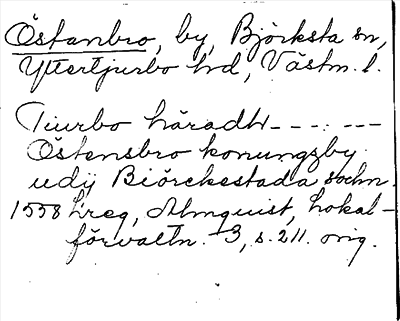 Östanbro, by, Björksta sn,
Yttertjurbo hd, Västm. l.
Tiurbo häradh - - - . - - -
Östensbro konungzby
udij Biörckestada sochn.
1558 hreg, Almquist, Lokal-
förvaltn. 3, s. 211. orig.